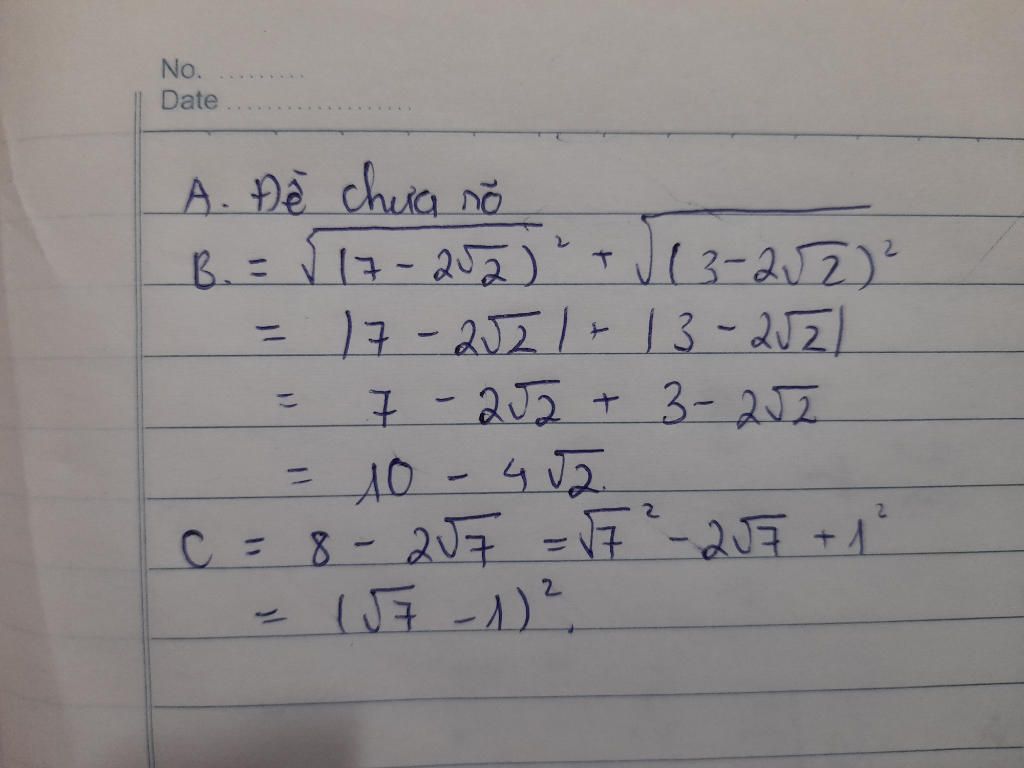 No. .........
Date ...................
A. Đề chưa rõ
B. = √(7 - 2√2)² + √(3 - 2√2)²
= |7 - 2√2| + |3 - 2√2|
= 7 - 2√2 + 3 - 2√2
= 10 - 4√2.
C = 8 - 2√7 = √7² - 2√7 + 1²
= (√7 - 1)².